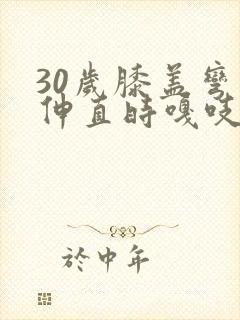 30歲膝盖彎
伸直時嘎吱
於中年